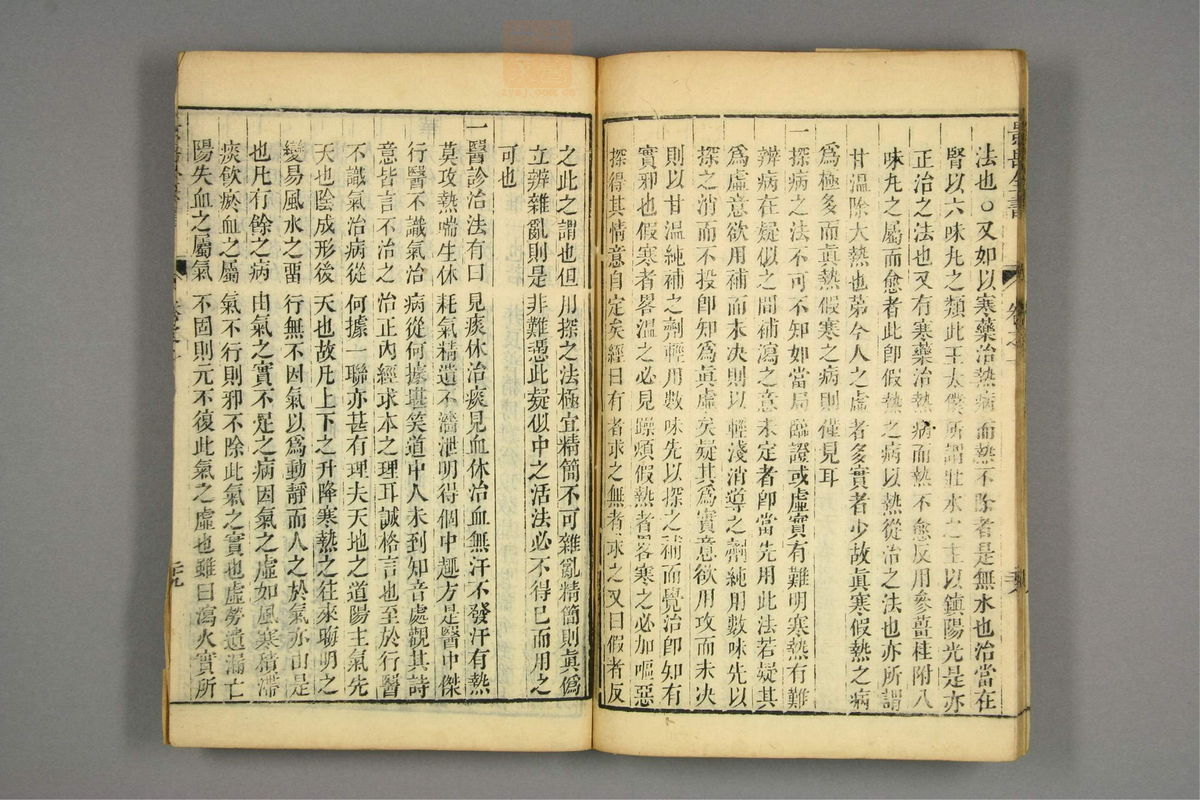 法也○又如以寒藥治熱病而熱不除者是無水也治當在
腎以六味丸之類此王太僕所謂壯水之主以鎮陽光是亦
正治之法也又有寒藥治熱病而熱不愈反用參薑桂附八
味丸之屬而愈者此即假熱之病以熱從治之法也亦所謂
甘溫除大熱也第今人之虛者多實者少故真寒假熱之病
為極多而真熱假寒之病則僅見耳
一探病之法不可不知如當局臨證或虛實有難明寒熱有難
辨病在疑似之間補瀉之意未定者即當先用此法若疑其
為虛意欲用補而未决則以輕淺消導之劑純用數味先以
探之消而不投即知為真虛矣疑其為實意欲用攻而未决
則以甘溫純補之劑輕用數味先以探之補而覺滯即知有
實邪也假寒者畧溫之必見躁煩假熱者畧寒之必加嘔惡
探得其情意自定矣經曰有者求之無者求之又曰假者反
之此之謂也但用探之法極宜精簡不可雜亂精簡則真偽
立辨雜亂則是非難憑此疑似中之活法必不得已而用之
可也
一醫診治法有曰見痰休治痰見血休治血無汗不發汗有熱
莫攻熱喘生休耗氣精遺不濇泄明得個中趣方是醫中傑
行醫不識氣治病從何據堪笑道中人未到知音處觀其詩
意皆言不治之治正內經求本之理耳誠格言也至於行醫
不識氣治病從何據一聯亦甚有理夫天地之道陽主氣先
天也陰成形後天也故凡上下之升降寒熱之往來晦明之
變易風水之畱行無不因氣以為動靜而人之於氣亦由是
也凡有餘之病由氣之實不足之病因氣之虛如風寒積滯
痰飲瘀血之屬氣不行則邪不除此氣之實也虛勞遺漏亡
陽失血之屬氣不固則元不復此氣之虛也雖曰瀉火實所